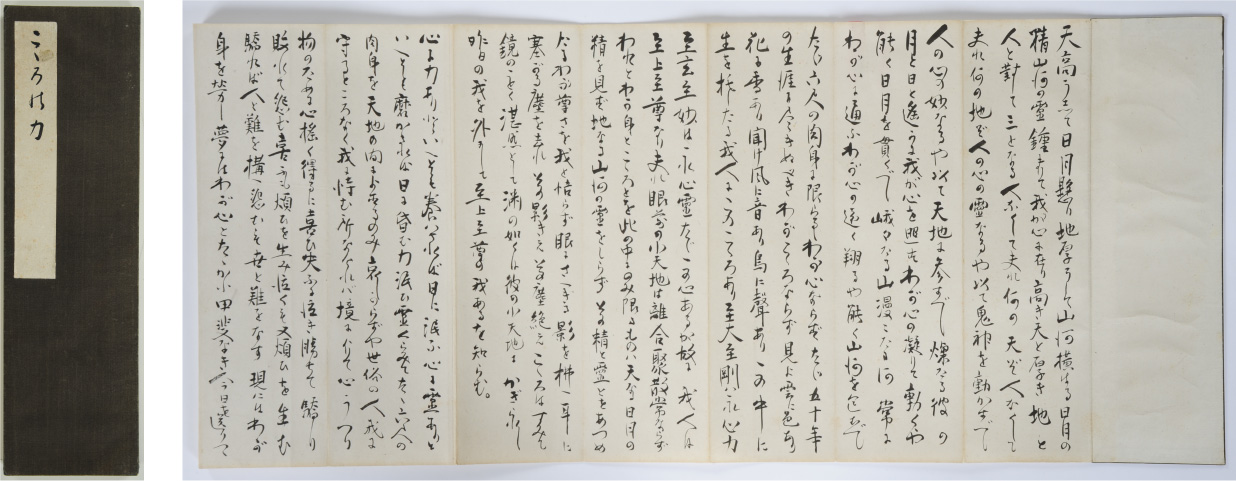 こころの力
天高うして日月懸り地厚うして山河横はる日月の
精山河の靈鍾まりて我が心に在り高き天と厚き地と
人と對して三となる人なくして夫れ何の天ぞ人なくして
夫れ何の地ぞ人の心の靈なるや以て鬼神を動かすべく
人の心の妙なるや以て天地に参すべし燦たる彼の
月と日と遙かに我が心を照しわが心の凝りて動くや
能く日月を貫くべし峨々たる山漫々たる河常に
わが心に通ふわが心の遠く翔るや能く山河を包むべし
たゞ六尺の肉身に限らるゝわが心ならずたゞ五十年
の生涯に尽きぬべきわがこころならず見よ雲に色あり
花に香あり聞け風に音あり鳥に聲ありこの中に
生を托したる我人にこのこころあり至大至剛は氷心力
至玄至妙は氷心靈なりこの心あるが故に我人は
至上至尊なり夫れ眼前の小天地は離合聚散常ならず
われとわが身とこころとを此の中にのみ限るものは天なる日月の
精を見ず地なる山河の靈をしらずその精と靈とをあつめ
たるわが尊さを我と悟らず眼にさへぎる影を拂へ耳に
塞がる塵を去れその影きえその塵絶えこころはすむ
鏡のごとく湛然として淵の如くば彼の小天地にかぎられし
昨日の我を外にして至上至尊の我あるを知らむ。
心に力ありといへども養はざれば日に泯ぶ心に靈ありと
いへども磨かざれば日に昏む力泯び靈くらみたる六尺の
肉身を天地の間に寄するのみ哀しからずや世俗の人我に
守るところなく我に恃む所なければ境によりて心うつり
物のために心揺く得るに喜び失ふに泣き勝ちて驕り
敗れて怨む喜ぶも煩ひを生み泣くも又煩ひを生む
驕れば人と難を構へ怨むも世と難をなす現にはわが
身を苦かし夢にはわが心とたゝかふ甲斐なき今日を送りて